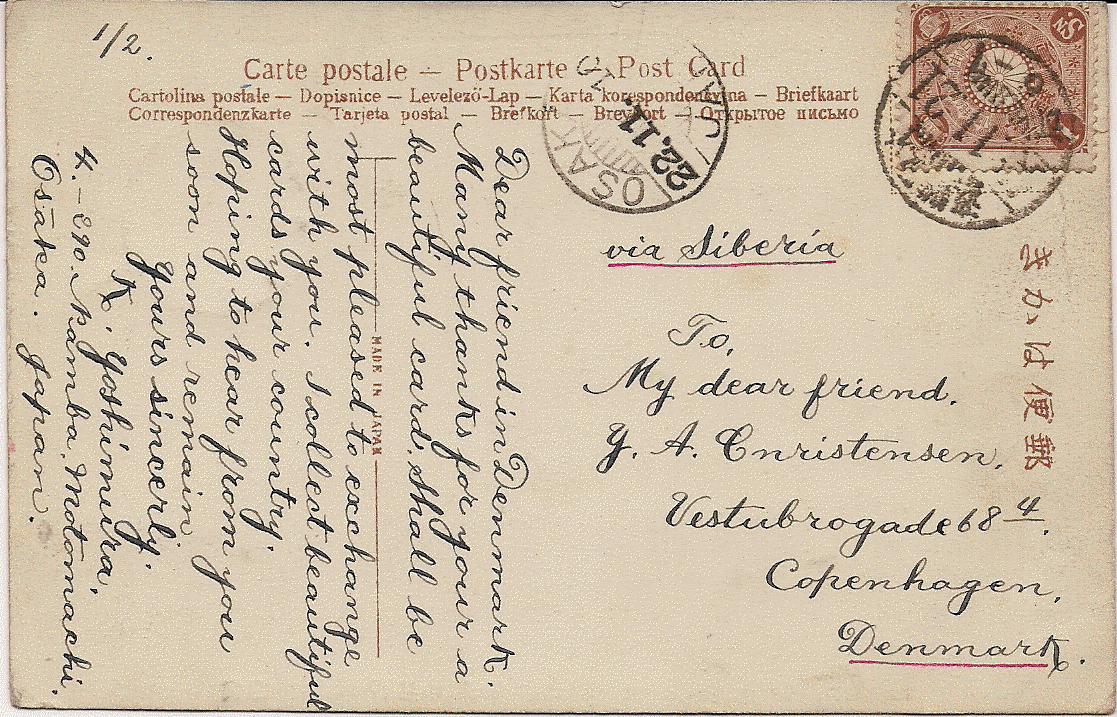 1/2.
Carte postale — Postkarte — Post Card
Cartolina postale — Dopisnice — Levelező-Lap — Karta korespondencyjna — Briefkaart
Correspondenzkarte — Tarjeta postal — Brefkort — Brevkort — Открытое письмо
Dear friend in Denmark.
Many thanks for your a
beautiful card. Shall be
most pleased to exchange
with you. I collect beautiful
cards your country.
Hoping to hear from you
soon and remain
Yours sincerly.
K. Yoshimura.
4.-270. Namba. Motomachi.
Osaka. Japan.
MADE IN JAPAN
OSAKA
22.11.
via Siberia
To,
My dear friend.
Y. A. Cnristensen.
Vestubrogade 68 4.
Copenhagen,
Denmark.
きかは便郵
Sn.
1